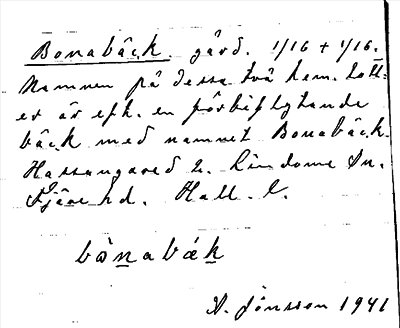 Bonabäck gård. 1/16 + 1/16.
Namnen på dessa två hem. lott-
er är eft. en förbiflytande
bäck med namnet Bonabäck.
Hassungared 2. Lindome Sn.
Fjäre hd. Hall. l.
bònabǽk
A. Jönsson 1941